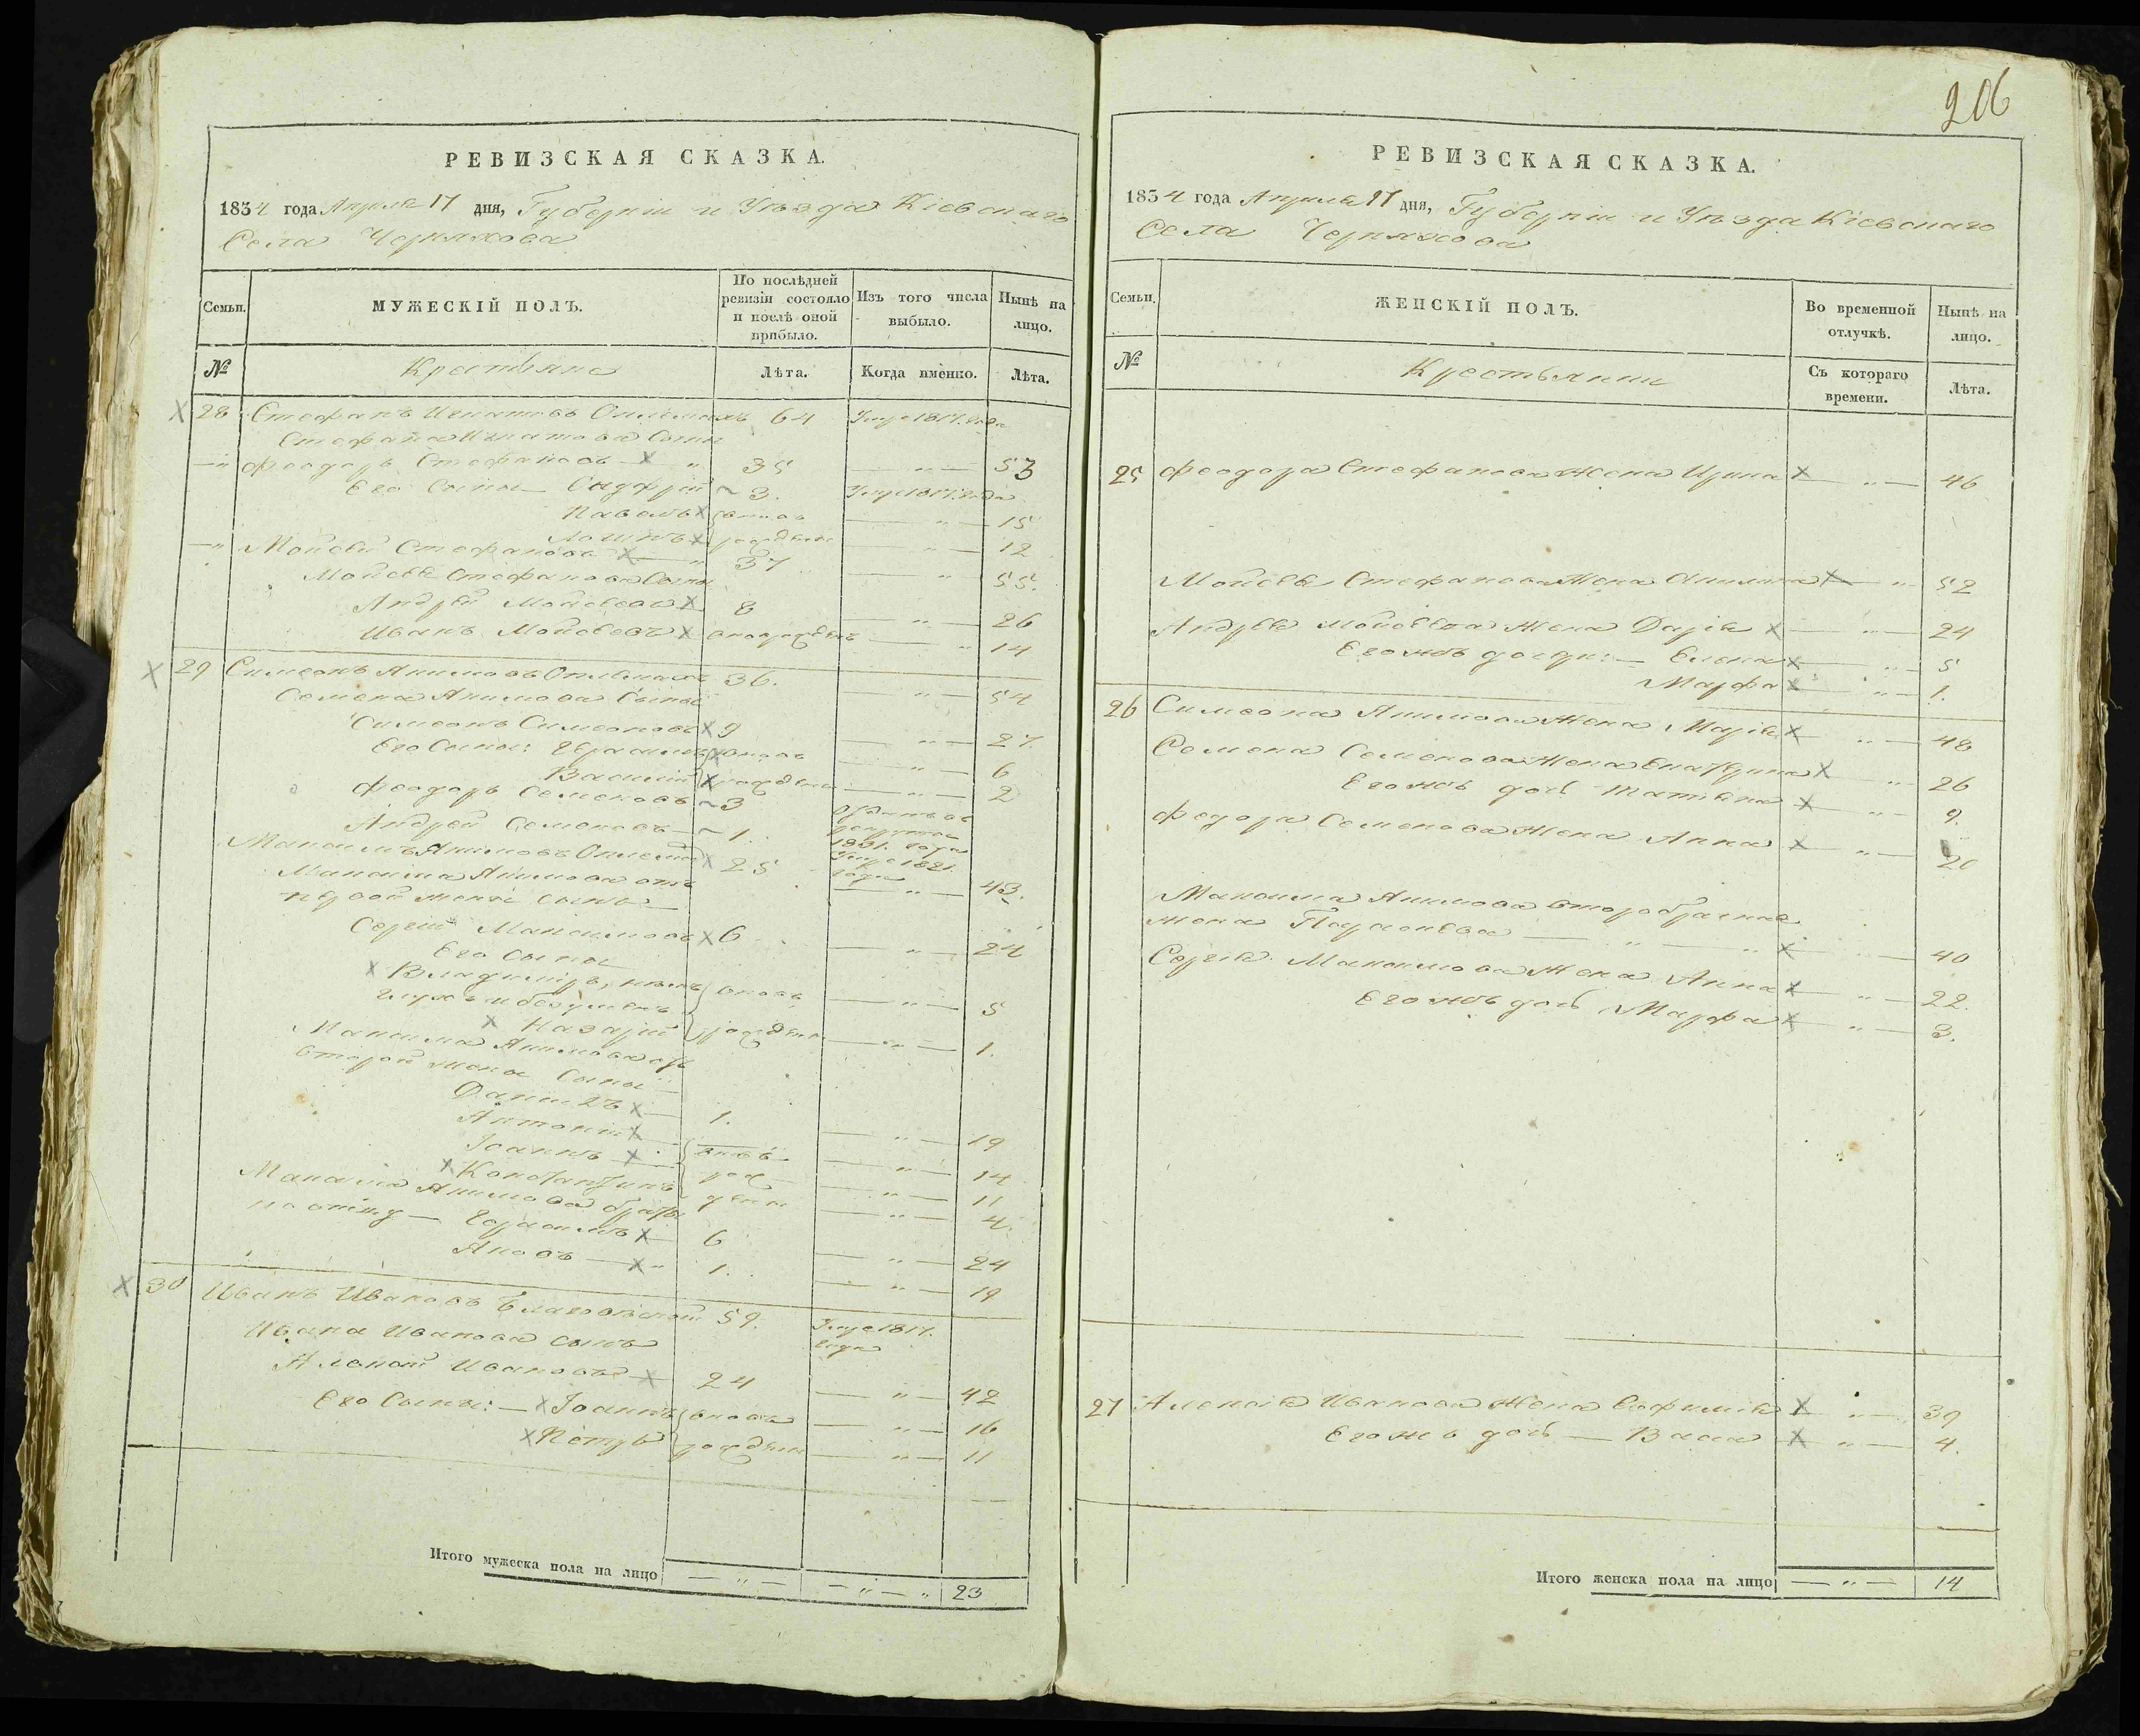 РЕВИЗСКАЯ СКАЗКА.
1834 года Апреля 17 дня, Губерніи и Уѣзда Кіевскаго
Села Черняхова
Семьи.
МУЖЕСКІЙ ПОЛЪ.
По послѣдней ревизіи состояло и послѣ оной прибыло.
Изъ того числа выбыло.
Нынѣ на лицо.
№
Крестьяне
Лѣта.
Когда именно.
Лѣта.
28 Стефанъ Игнатовъ 64 1817. года
Стефана Игнатова Сыны
Феодоръ Стефановъ 35 53
Его Сыны 3. 1817. года
Павелъ вновь 15
рождены 12
Мойсей Стефановъ 37 55.
Мойсея Стефанова Сыны
Андрей Мойсеевъ 8 26
Иванъ Мойсеевъ 14
29 Симеонъ Акимовъ 36. 54
Семена Акимова Сыны
Симеонъ Симеоновъ 9 27.
Его Сыны: Герасимъ вновь 6
Василій рождены 2
Феодоръ Семеновъ 3
Андрей Семеновъ 1. 1831. года
Максимъ Акимовъ 25 1821. года 43.
Максима Акимова отъ
первой жены сынъ
Сергій Максимовъ 6 24
Его Сыны
Владимиръ, нѣмъ вновь 5
глухъ и безуменъ
Назарій рождены 1.
Максима Акимова отъ
второй жены Сыны
Даніилъ 1. 19
Антоній вновь 14
Іоаннъ рож 11
Константинъ дены 4.
Максима Акимова братья
по отцу — Герасимъ 6 24
Яковъ 1. 19
30 Иванъ Ивановъ 59. 1817. года
Ивана Иванова сынъ
Алексѣй Ивановъ 24 42
Его Сыны: — Іоаннъ вновь 16
Петръ рождены 11
Итого мужеска пола на лицо 23
206
РЕВИЗСКАЯ СКАЗКА.
1834 года Апреля 17 дня, Губерніи и Уѣзда Кіевскаго
Села Черняхова
Семьи.
ЖЕНСКІЙ ПОЛЪ.
Во временной отлучкѣ.
Нынѣ на лицо.
№
Крестьянки
Съ котораго времени.
Лѣта.
25 Феодора Стефанова Жена Ирина 46
Мойсея Стефанова Жена 52
Андрея Мойсеева Жена Дарія 24
Его жъ дочери: — Елена 5
Марфа 1.
26 Симеона Акимова Жена Марія 48
Семена Семенова Жена Екатерина 26
Его жъ дочь Татіяна 9.
Федора Семенова Жена Анна 20
Максима Акимова второбрачная
жена Параскева 40
Сергія Максимова Жена Анна 22.
Его жъ дочь Марфа 3.
27 Алексія Иванова Жена Евфимія 39
Его жъ дочь — Васса 4.
Итого женска пола на лицо 14